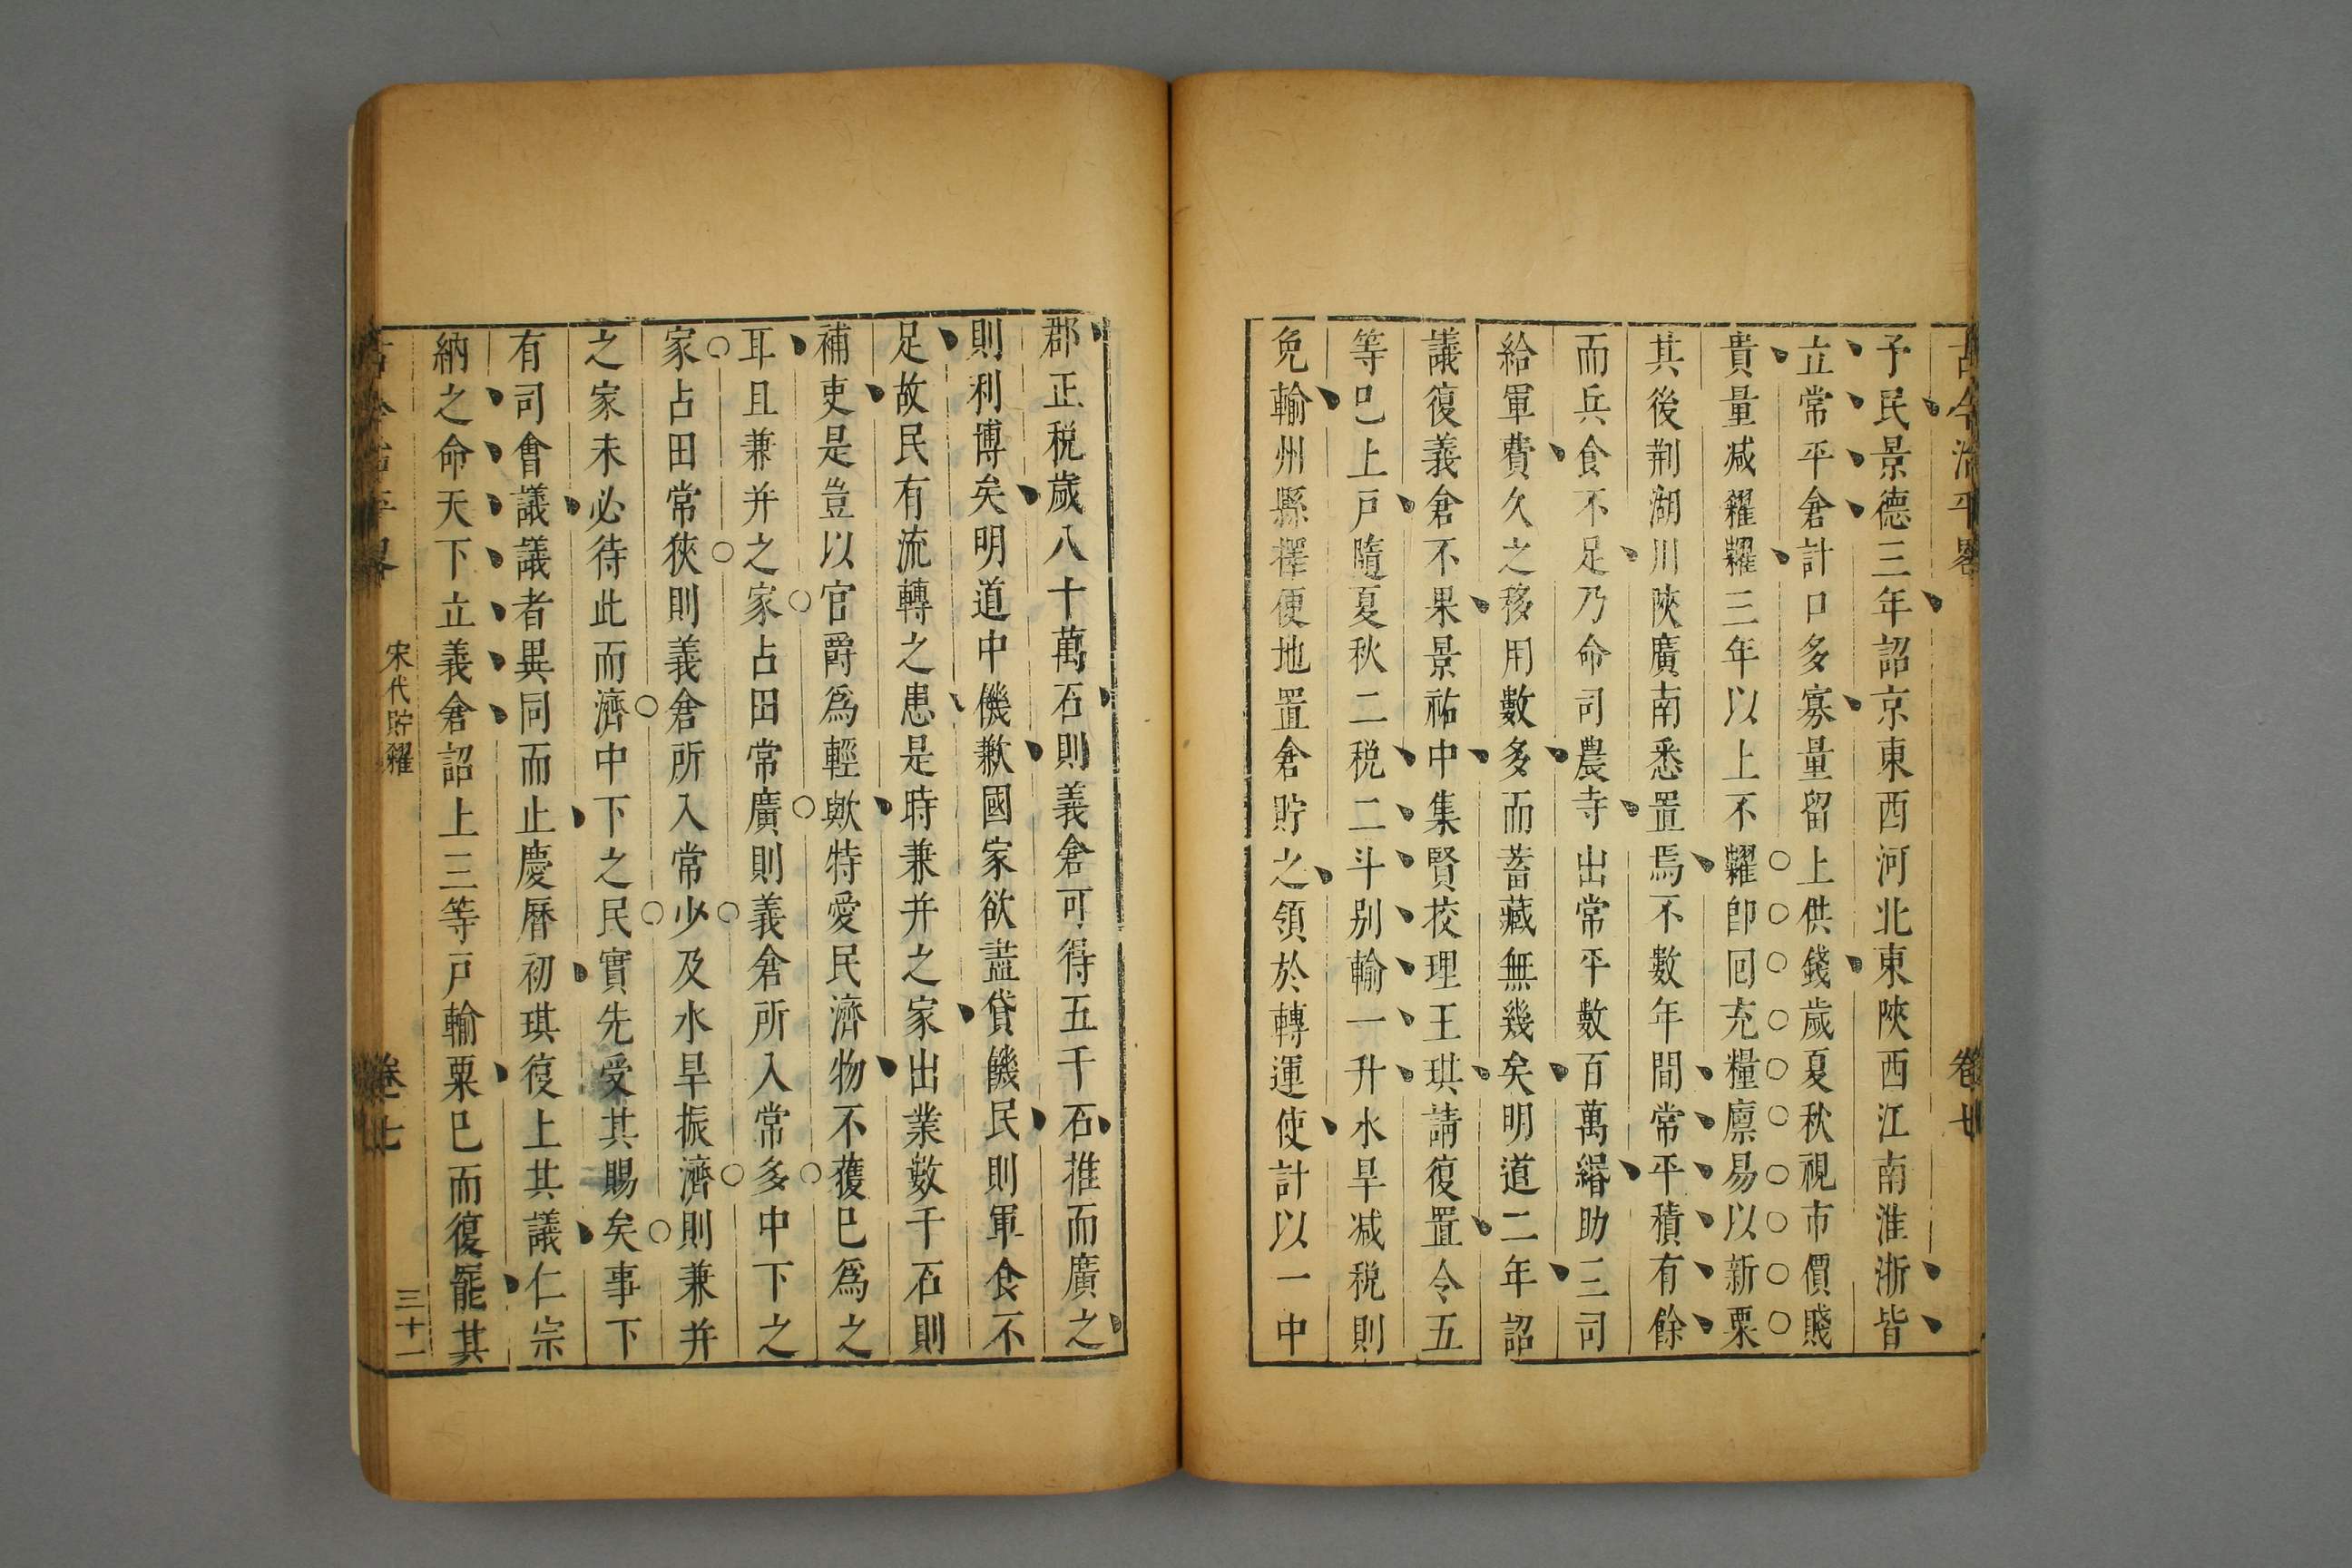 古今治平畧 卷廿
予民景德三年詔京東西河北東陝西江南淮浙皆
立常平倉計口多寡量留上供錢歲夏秋視市價賤
貴量減糴糶三年以上不糶卽回充糧廪易以新粟
其後荆湖川陝廣南悉置焉不數年間常平積有餘
而兵食不足乃命司農寺出常平數百萬緡助三司
給軍費久之移用數多而蓄藏無幾矣明道二年詔
議復義倉不果景祐中集賢挍理王琪請復置令五
等巳上戸隨夏秋二税二斗别輸一升水旱减税則
免輸州縣擇便地置倉貯之領於轉運使計以一中
郡正税歲八十萬石則義倉可得五千石推而廣之
則利博矣明道中僟歉國家欲盡貸饑民則軍食不
足故民有流轉之患是時兼并之家出業數千石則
補吏是豈以官爵爲輕歟特愛民濟物不獲巳爲之
耳且兼并之家占田常廣則義倉所入常多中下之
家占田常狹則義倉所入常少及水旱振濟則兼并
之家未必待此而濟中下之民實先受其賜矣事下
有司會議議者異同而止慶曆初琪復上其議仁宗
納之命天下立義倉詔上三等戸輸粟巳而復罷其
古今治平畧 宋代貯糴 卷七 三十一